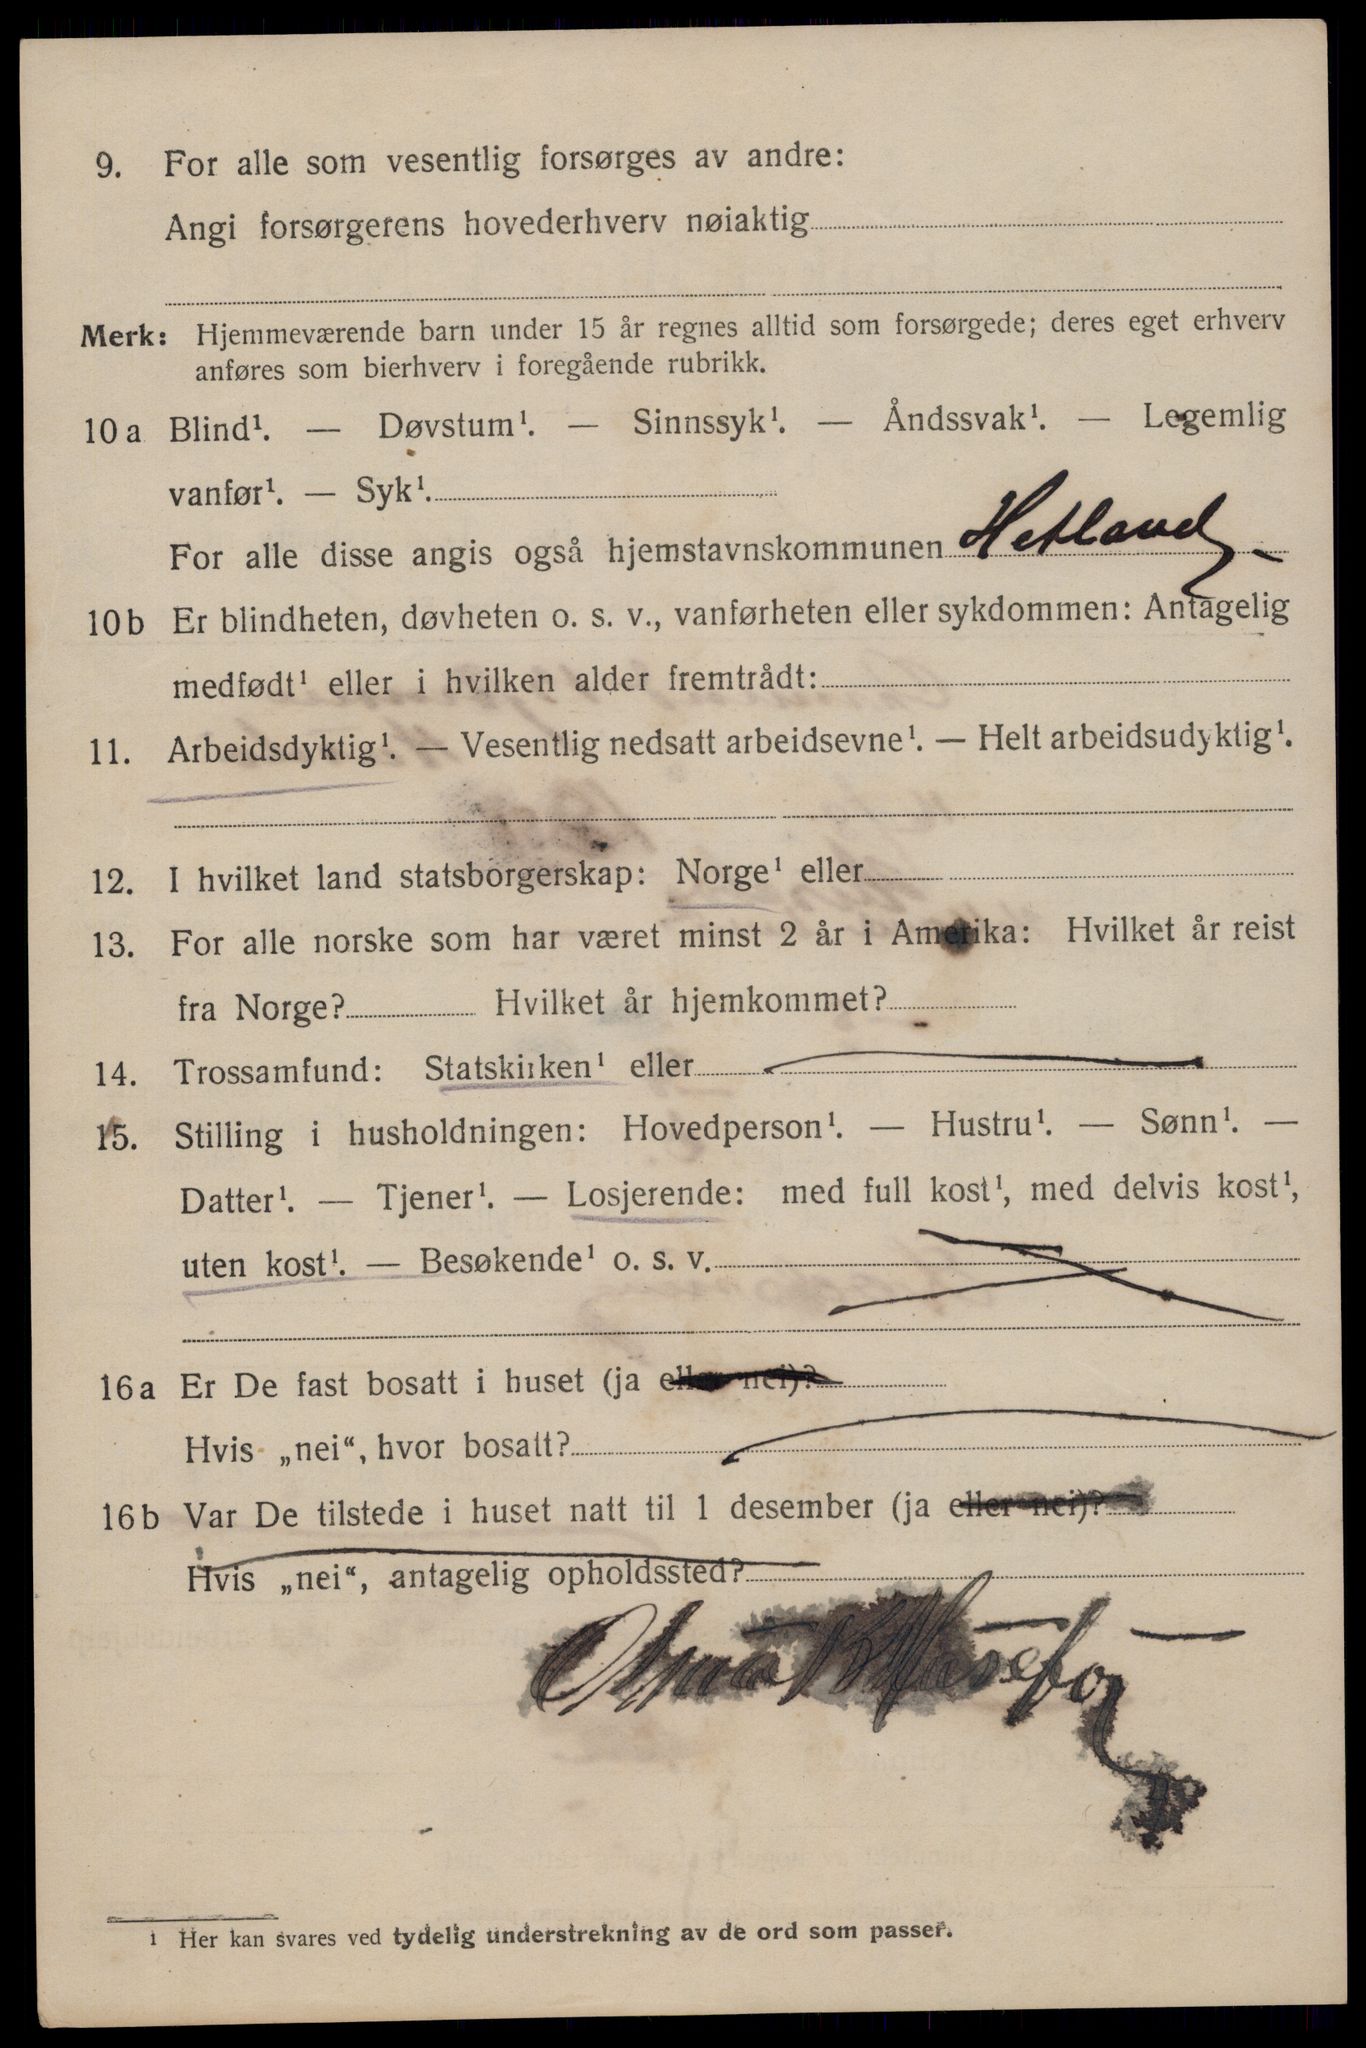 9. For alle som vesentlig forsørges av andre:
Angi forsørgerens hovederhverv nøiaktig
Merk: Hjemmeværende barn under 15 år regnes alltid som forsørgede; deres eget erhverv
anføres som bierhverv i foregående rubrikk.
10 a Blind¹. — Døvstum¹. — Sinnssyk¹. — Åndssvak¹. — Legemlig
vanfør¹. — Syk¹.
For alle disse angis også hjemstavnskommunen Hetland
10 b Er blindheten, døvheten o. s. v., vanførheten eller sykdommen: Antagelig
medfødt¹ eller i hvilken alder fremtrådt:
11. Arbeidsdyktig¹. — Vesentlig nedsatt arbeidsevne¹. — Helt arbeidsudyktig¹.
12. I hvilket land statsborgerskap: Norge¹ eller
13. For alle norske som har været minst 2 år i Amerika: Hvilket år reist
fra Norge? Hvilket år hjemkommet?
14. Trossamfund: Statskirken¹ eller
15. Stilling i husholdningen: Hovedperson¹. — Hustru¹. — Sønn¹. —
Datter¹. — Tjener¹. — Losjerende: med full kost¹, med delvis kost¹,
uten kost¹. — Besøkende¹ o. s. v.
16 a Er De fast bosatt i huset (ja eller nei)?
Hvis „nei“, hvor bosatt?
16 b Var De tilstede i huset natt til 1 desember (ja eller nei)?
Hvis „nei“, antagelig opholdssted?
¹ Her kan svares ved tydelig understrekning av de ord som passer.